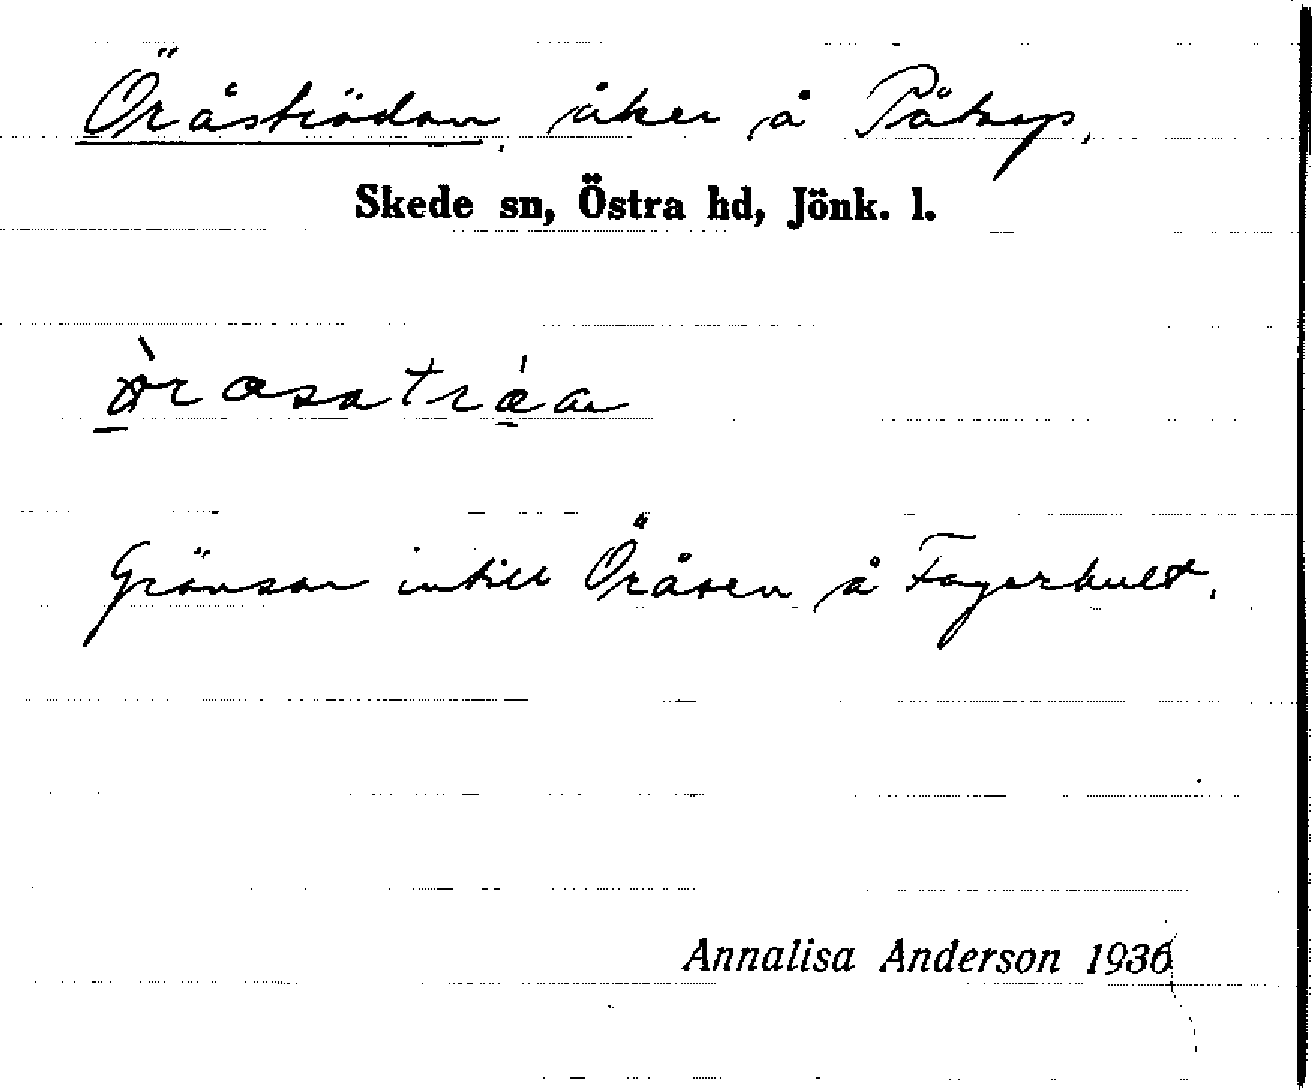 Öråsträdan, åker å Påkarp.
Skede sn, Östra hd, Jönk. l.
Gränsar intill Öråsen å Fagerhult.
Annalisa Anderson 1936